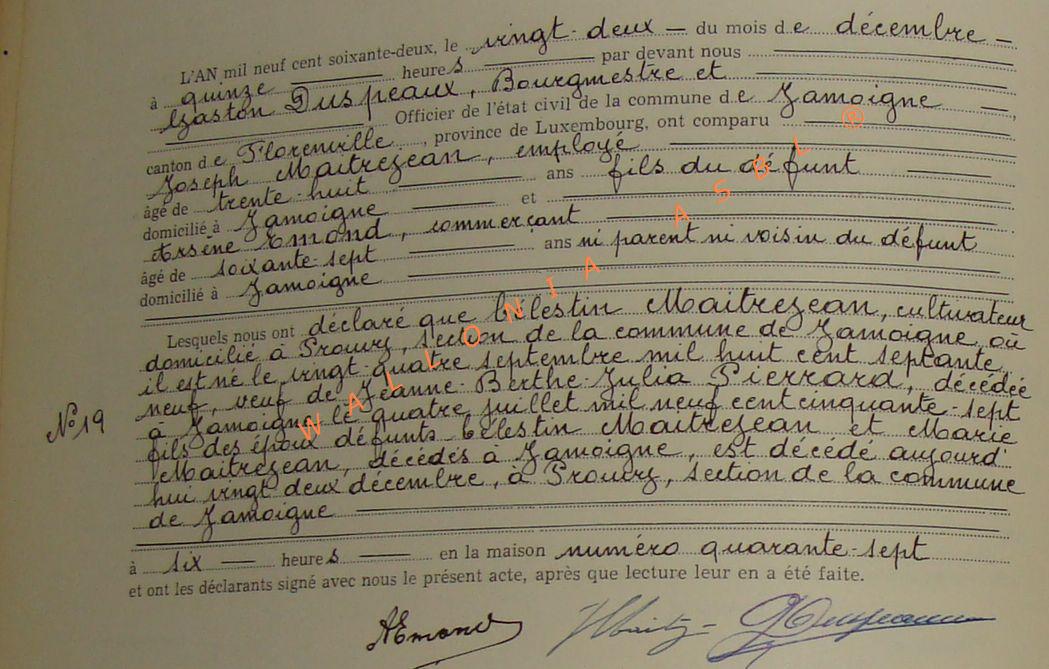 L'AN mil neuf cent soixante-deux, le vingt-deux — du mois de décembre —
à quinze heures par devant nous
Gaston Duspeaux, Bourgmestre et
Officier de l'état civil de la commune de Jamoigne
canton de Florenville, province de Luxembourg, ont comparu
Joseph Maitrejean, employé
âgé de trente-huit ans fils du défunt
domicilié à Jamoigne et
Arsène Emond, commerçant
âgé de soixante-sept ans ni parent ni voisin du défunt
domicilié à Jamoigne
Lesquels nous ont déclaré que Célestin Maitrejean, culturateur
domicilié à Prouvy, section de la commune de Jamoigne, où
il est né le vingt-quatre septembre mil huit cent septante
neuf, veuf de Jeanne-Berthe-Julia Pierrard, décédée
à Jamoigne le quatre juillet mil neuf cent cinquante-sept
N° 19
fils des époux défunts Célestin Maitrejean et Marie
Maitrejean, décédés à Jamoigne, est décédé aujourd'
hui vingt deux décembre, à Prouvy, section de la commune
de Jamoigne
à six — heures — en la maison numéro quarante-sept
et ont les déclarants signé avec nous le présent acte, après que lecture leur en a été faite.
AEmond
WALLONIA ASBL ®